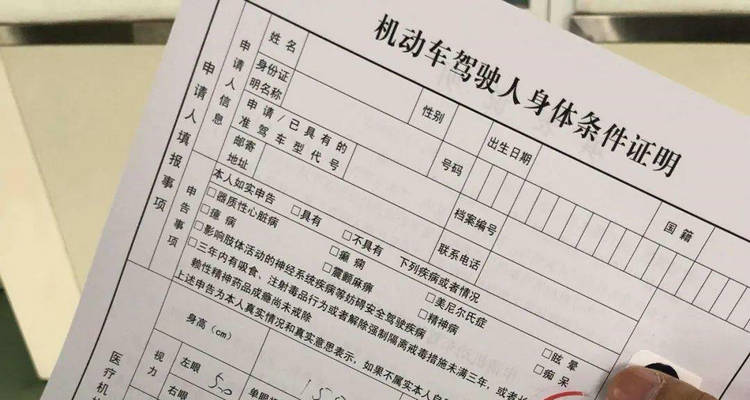 机动车驾驶人身体条件证明
申请人填报事项
申请人信息
姓名
性别
出生日期
国籍
身份证
明名称
号码
申请/已具有的
准驾车型代号
档案编号
邮寄
地址
联系电话
申告事项
本人如实申告 □具有 □不具有 下列疾病或者情况
□器质性心脏病 □癫痫 □美尼尔氏症 □眩晕
□癔病 □震颤麻痹 □精神病 □痴呆
□影响肢体活动的神经系统疾病等妨碍安全驾驶疾病
□三年内有吸食、注射毒品行为或者解除强制隔离戒毒措施未满三年,或者长
赖性精神药品成瘾尚未戒除
上述申告为本人真实情况和真实意思表示,如果不属实本人自
医疗机
身高(cm)
视力
左眼
5.0
右眼
单眼